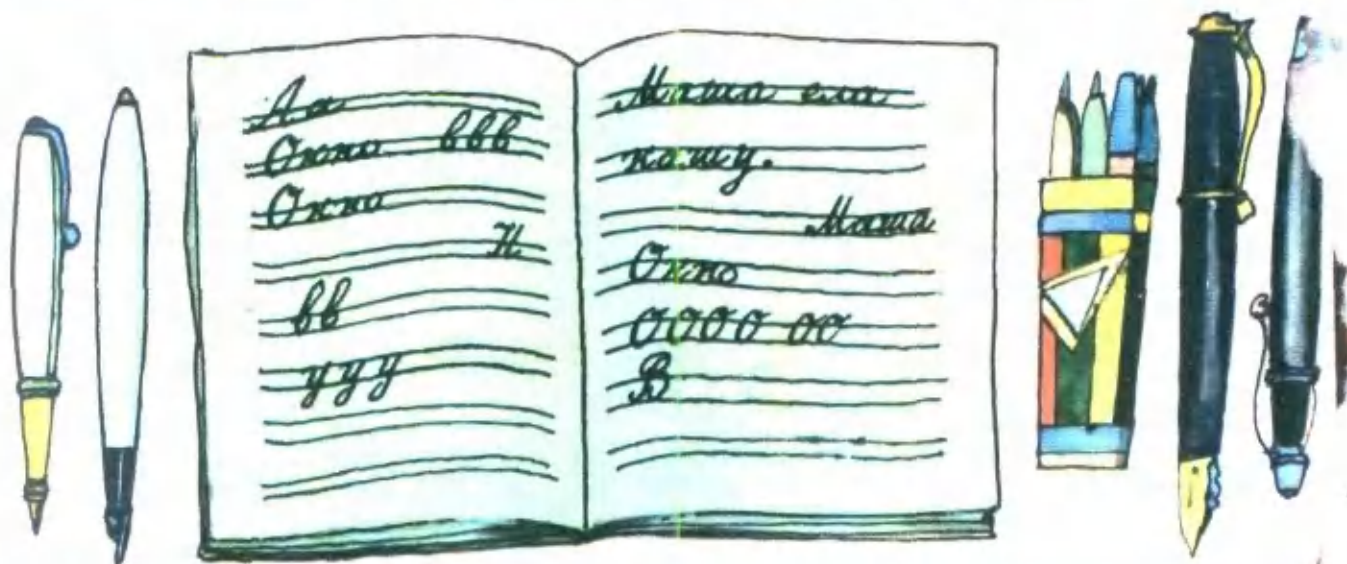 Аа
Окно ввв
Окно
Н
вв
ууу
Маша ела
кашу.
Маша
Окно
ОООО оо
В